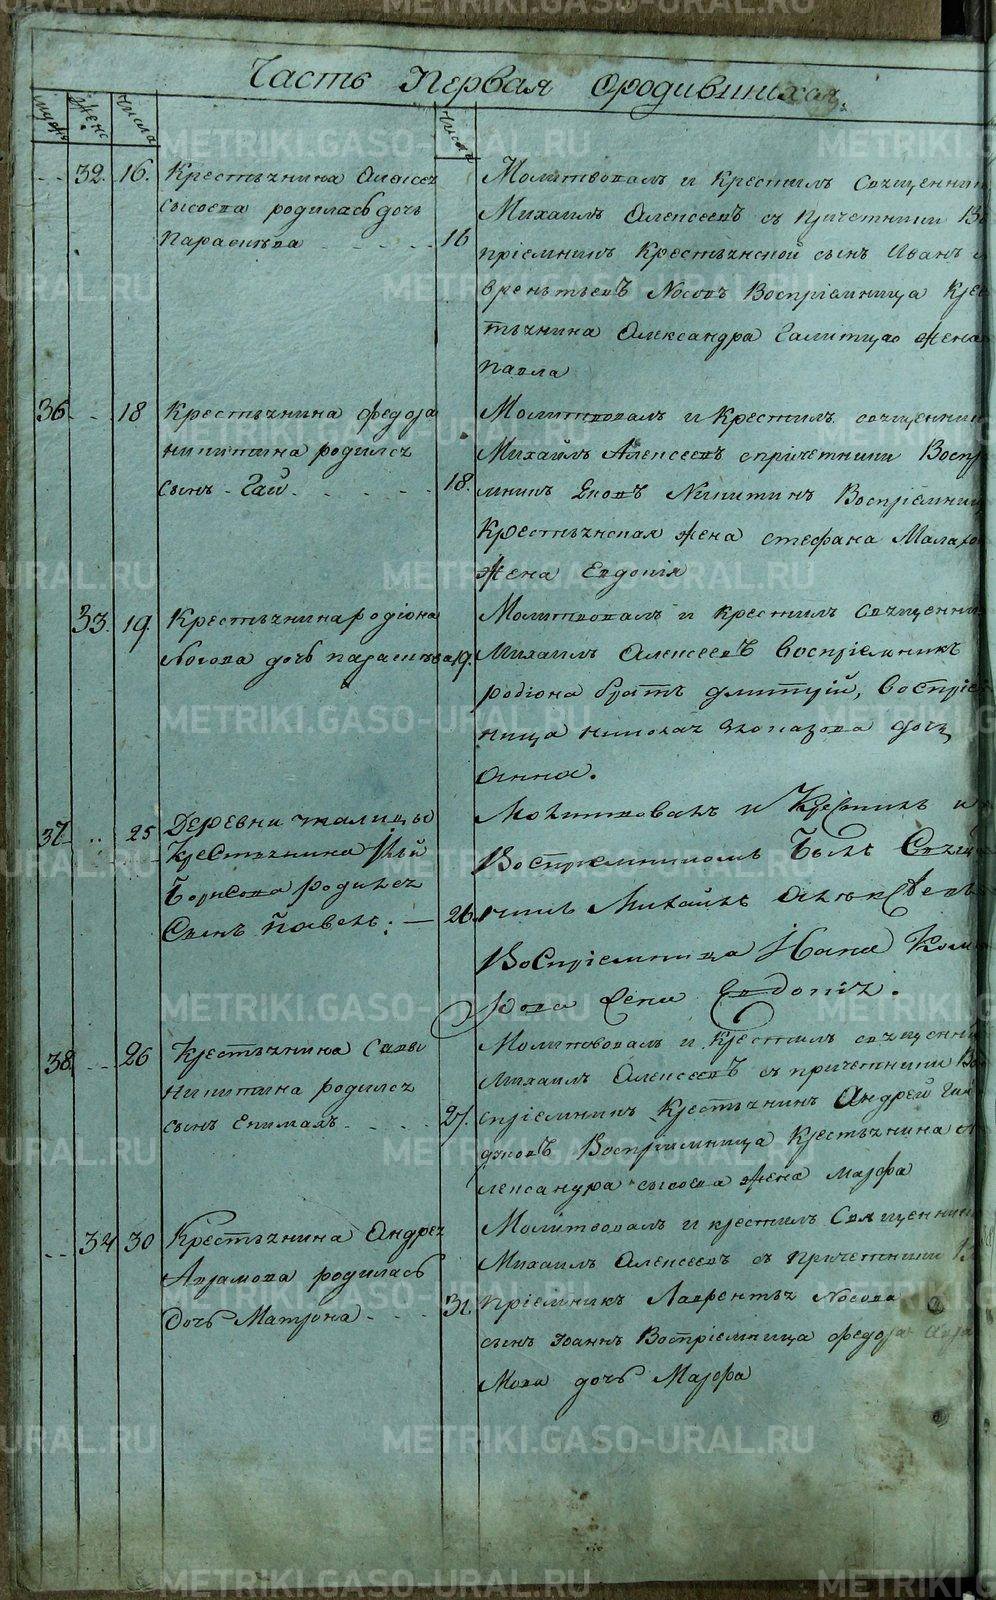 Часть Первая ородившихся,
мужск женс числа числа
32. 16. Крестьянина Алексея
сысоева родилась дочь
Параскева 16
Молитвовалъ и Крестилъ Священни
Михаилъ Алексеевъ съ причетники Во
пріемникъ Крестьянской сынъ Иванъ
врентьевъ Носовъ Воспріемница Крес
тьянина Александра Галитцо жена
павла
36. 18 Крестьянина федора
никитина родился
сынъ Гай 18.
Молитвовалъ и Крестилъ священни
Михаилъ Алексеевъ спричетники Воспр
мникъ Яковъ Никитинъ Воспріемни
Крестьянская жена стефана Малахо
жена Евдокія
33. 19. Крестьянина родіона
Носова дочь параскева 19.
Молитвовалъ и крестилъ Священни
Михаилъ Алексеевъ воспріемникъ
родіона братъ дмитрій, воспріе
ница николая дочь
анна.
37. 25 Деревни талицы
Крестьянина
Борисова родился
Сынъ Павелъ. 26.
Молитвовалъ и Крестилъ и
Воспріемникомъ былъ Свящ
никъ Михайлъ алексеевъ
Воспріемница Ивана Кома
рова жена Евдокія.
38. 26 Крестьянина Савы
Никитина родился
сынъ Епимахъ 27.
Молитвовалъ и Крестилъ священни
Михаилъ Алексеевъ съ причетники Во
спріемникъ Крестьянинъ Андрей Гай
дуковъ Воспріемница Крестьянина а
лександра сысоева жена Марфа
34 30 Крестьянина Андрея
Аврамова родилась
дочь Матрона 31.
Молитвовалъ и крестилъ Священни
Михаилъ Алексеевъ съ Причетники В
пріемникъ Лаврентья Носова
сынъ Іоаннъ Воспріемница федора Авра
мова дочь Марфа
METRIKI.GASO-URAL.RU